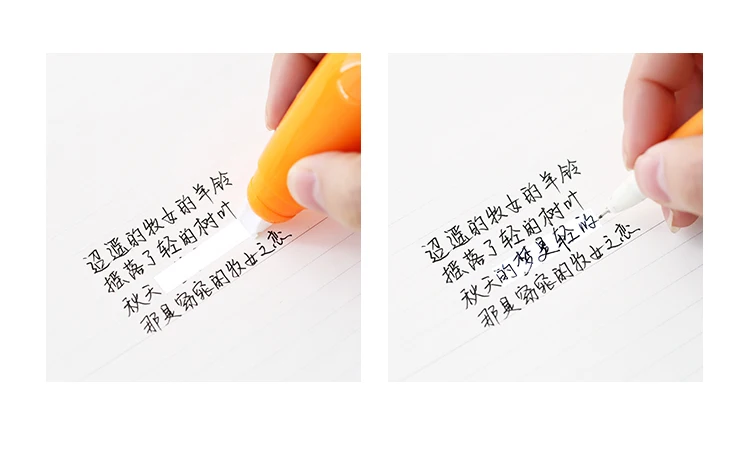 迢遥的牧女的羊铃
摇落了轻的树叶
秋天
那是窈窕的牧女之恋
迢遥的牧女的羊铃
摇落了轻的树叶
秋天的梦是轻的
那是窈窕的牧女之恋